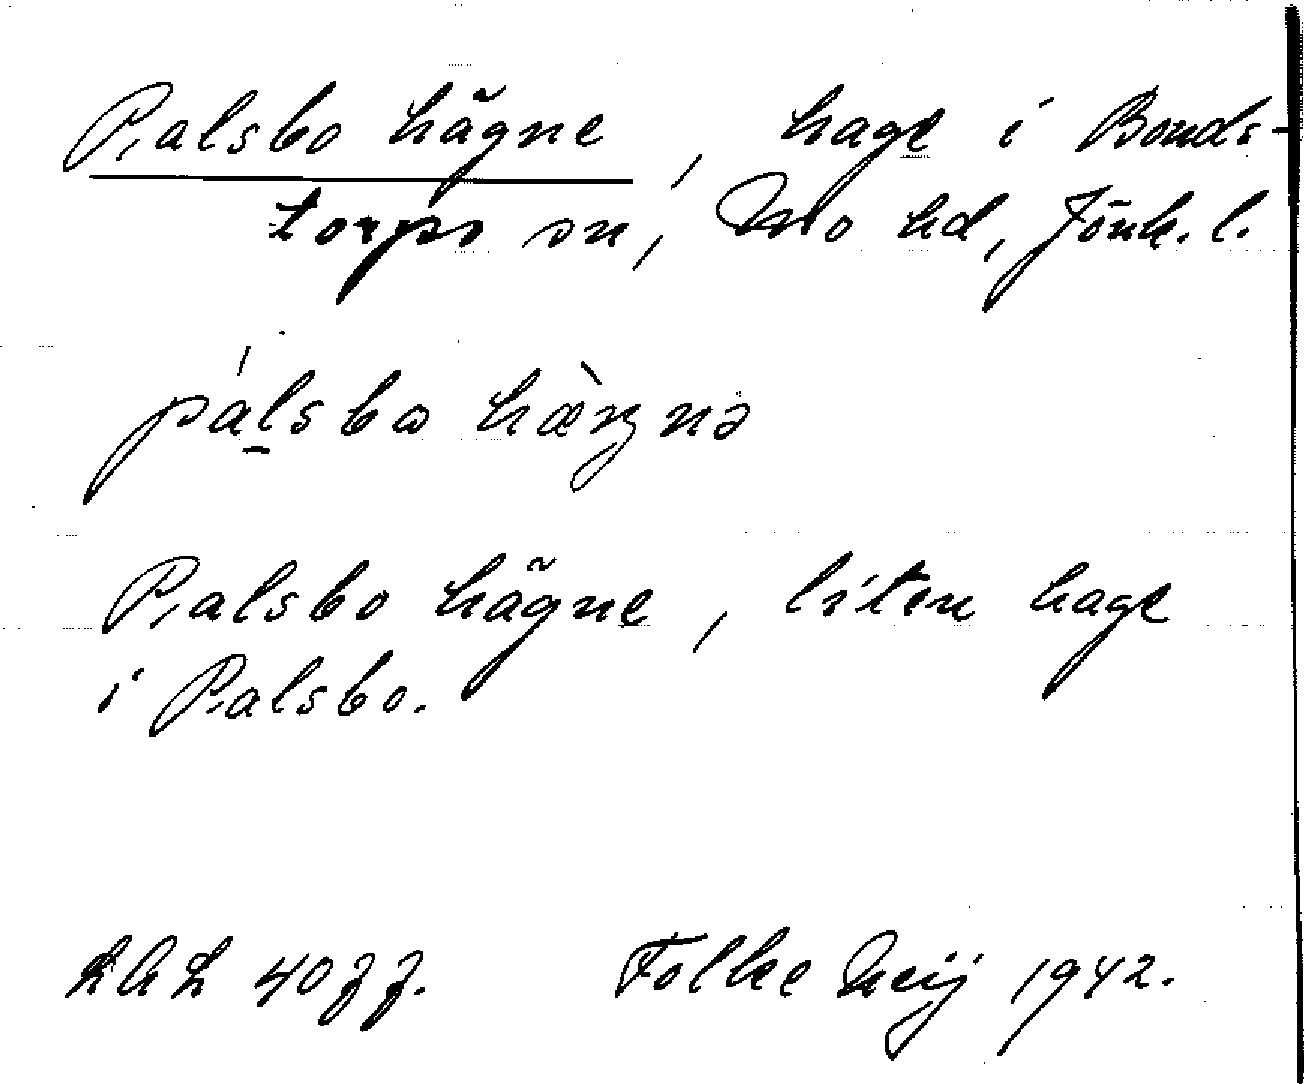 Palsbo hägne, hage i Bonds-
torps sn, Mo hd, Jönk. l.
pálsbo hæ̀ŋnə
Palsbo hägne, liten hage
i Palsbo.
Folke Meij 1942.